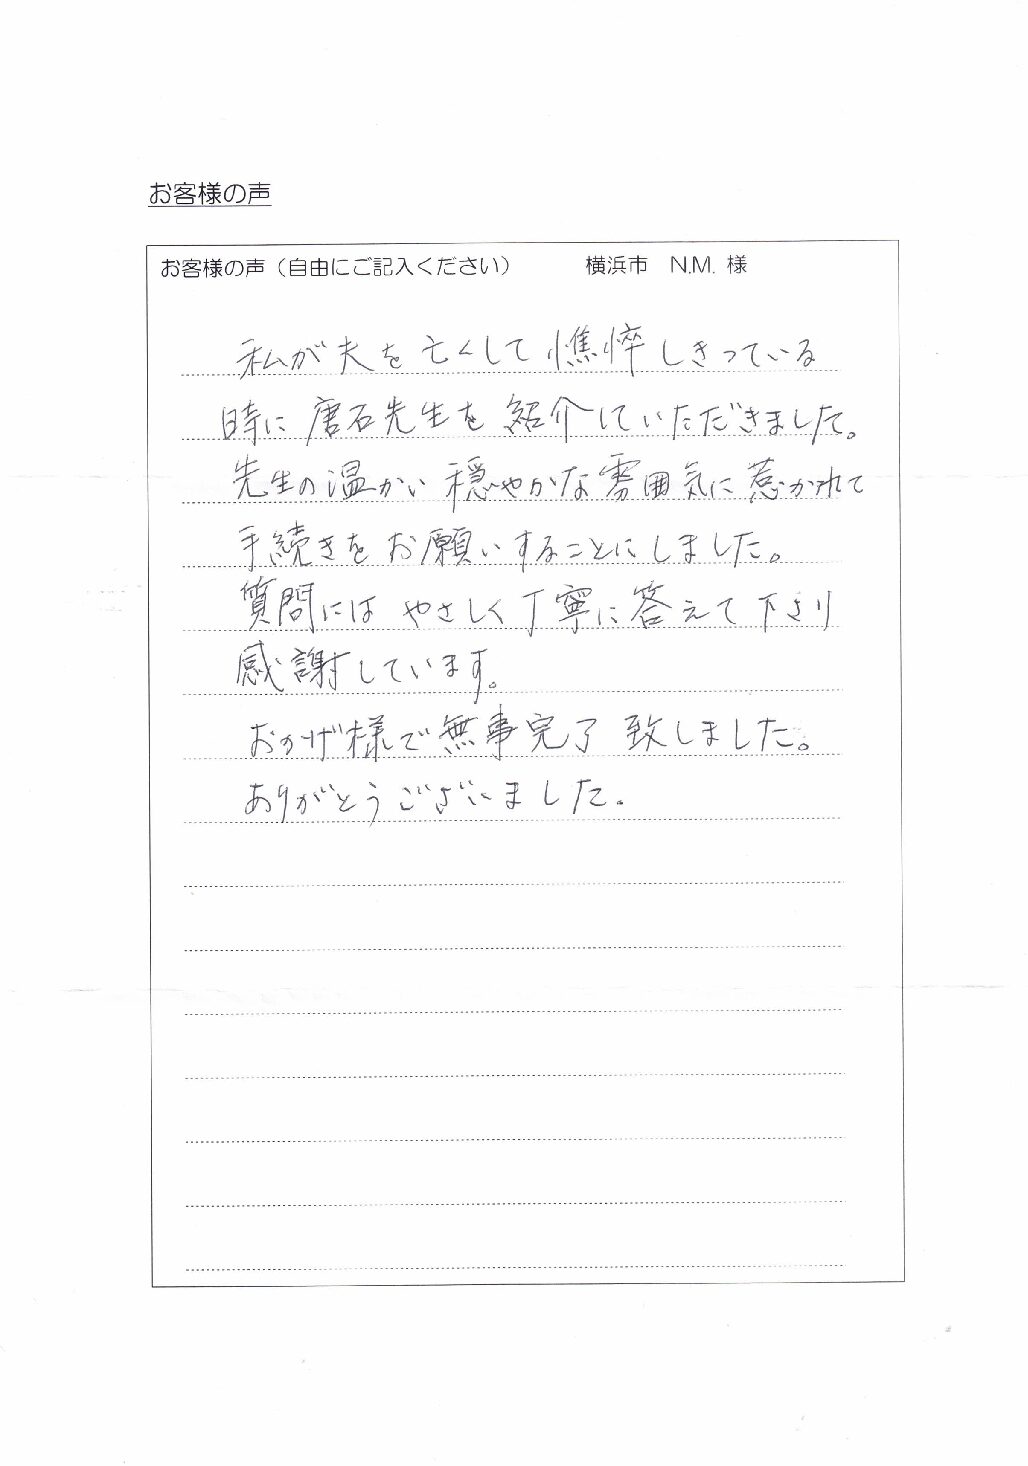 お客様の声
お客様の声（自由にご記入ください） 横浜市 N.M. 様
私が夫を亡くして憔悴しきっている
時に唐石先生を紹介していただきました。
先生の温かい穏やかな雰囲気に惹かれて
手続きをお願いすることにしました。
質問にはやさしく丁寧に答えて下さり
感謝しています。
おかげ様で無事完了致しました。
ありがとうございました。